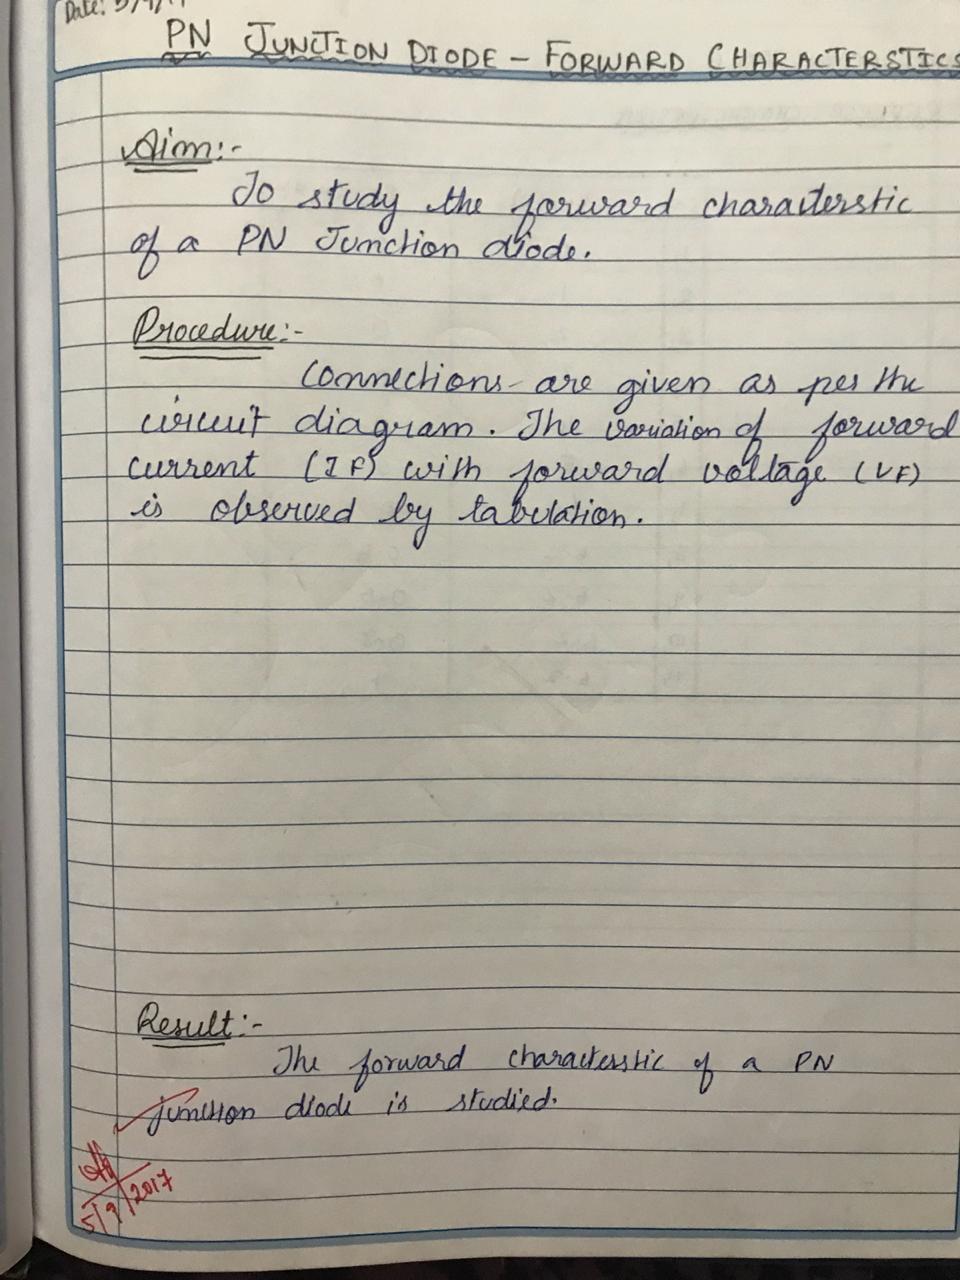 Date: 5/9/17
PN JUNCTION DIODE - FORWARD CHARACTERSTICS
Aim:-
To study the forward characterstic
of a PN Junction diode.
Procedure:-
Connections are given as per the
circuit diagram. The variation of forward
current (IF) with forward voltage (VF)
is observed by tabulation.
Result:-
The forward characterstic of a PN
junction diode is studied.
5/9/2017